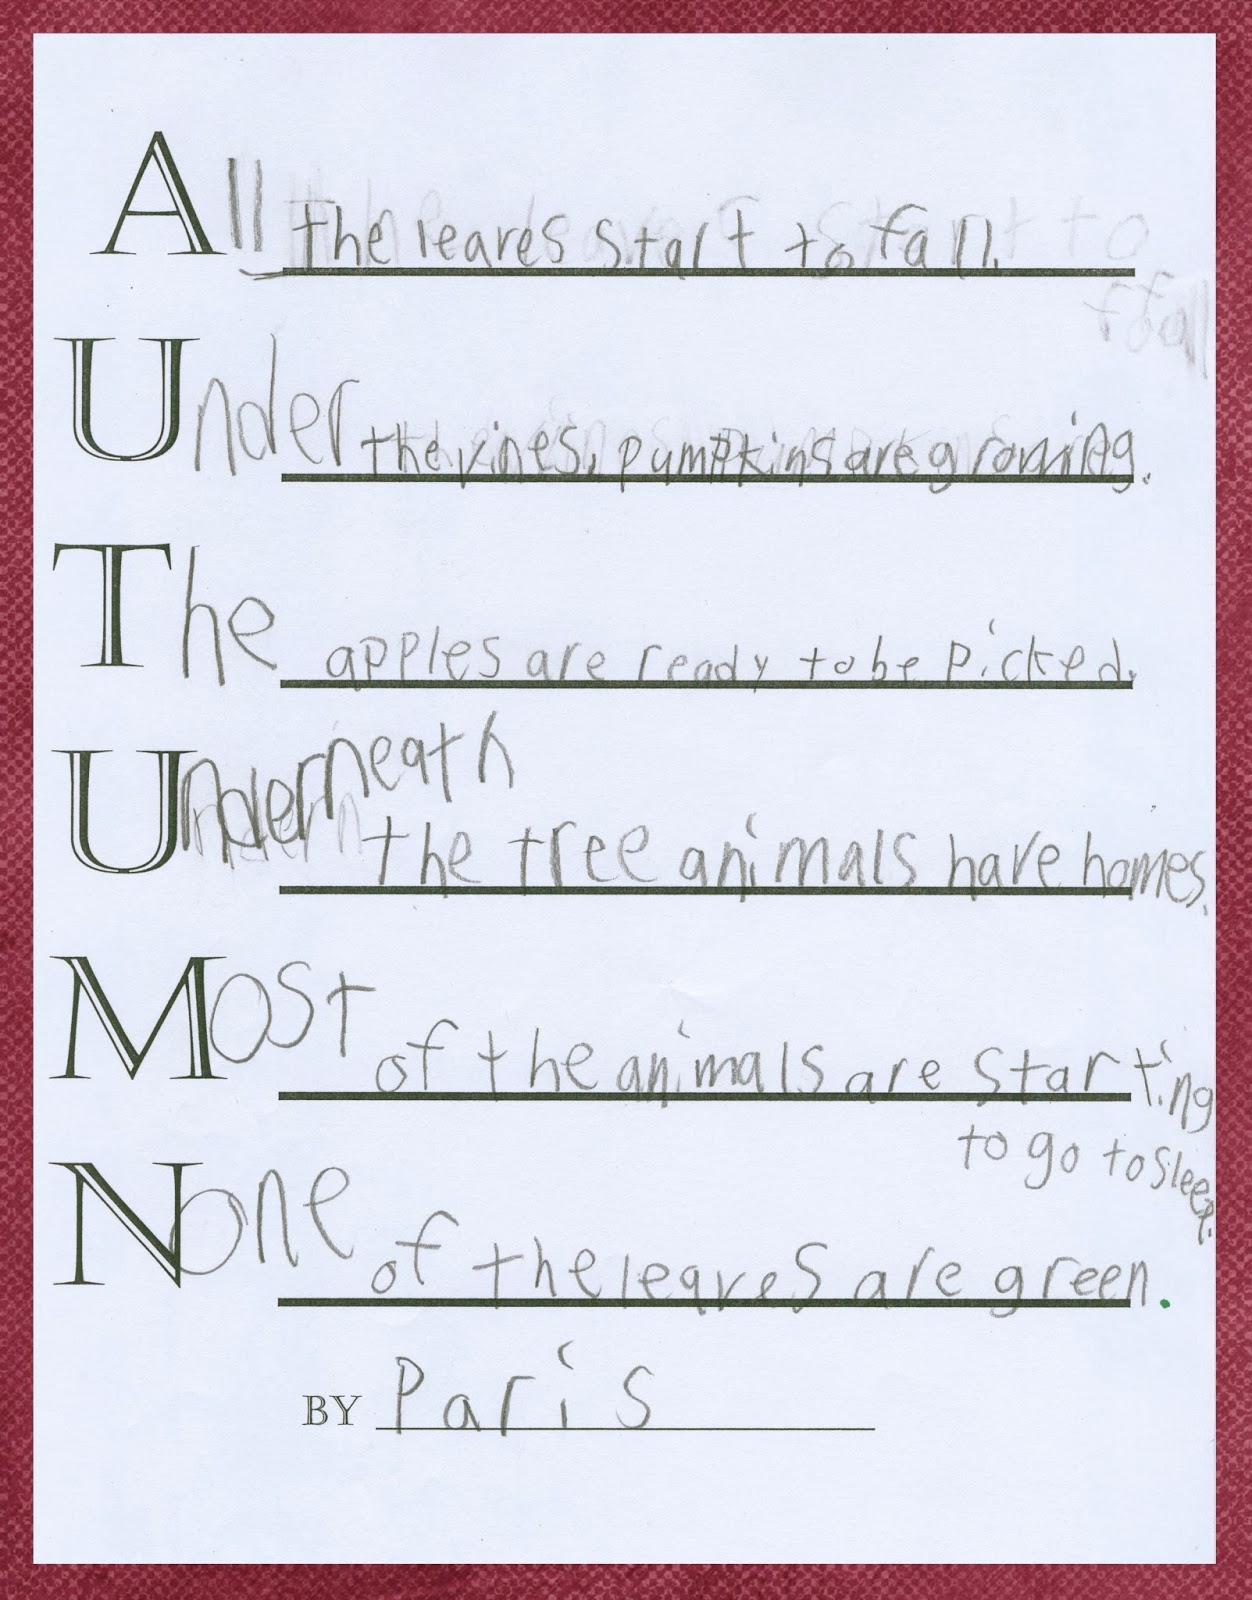 All the leaves start to fall.
Under the vines, pumpkins are growing.
The apples are ready to be picked.
Underneath
the tree animals have homes.
Most of the animals are starting
to go to sleep.
None of the leaves are green.
BY Paris